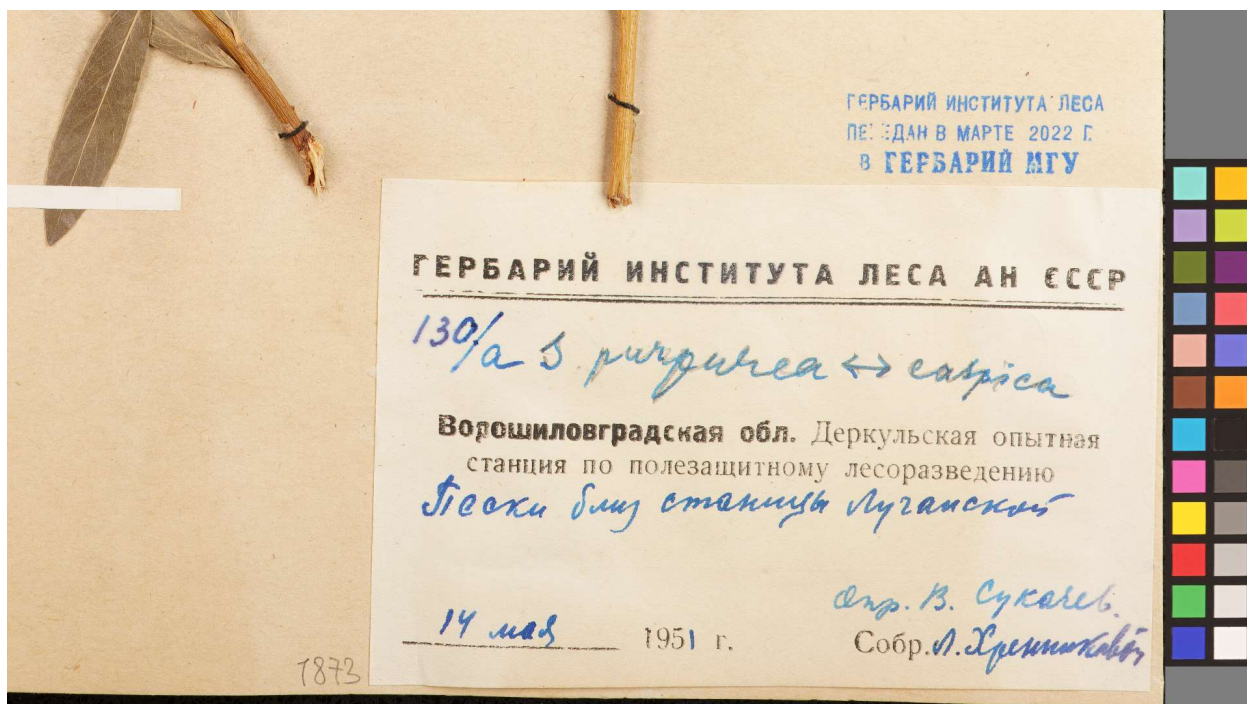 ГЕРБАРИЙ ИНСТИТУТА ЛЕСА
ПЕРЕДАН В МАРТЕ 2022 Г.
В ГЕРБАРИЙ МГУ
ГЕРБАРИЙ ИНСТИТУТА ЛЕСА АН СССР
130/a S purpurea ↔ caspica
Ворошиловградская обл. Деркульская опытная
станция по полезащитному лесоразведению
Пески близ станицы Луганской
Опр. В. Сукачев.
14 мая 1951 г. Собр. Л. Хренникова
7873